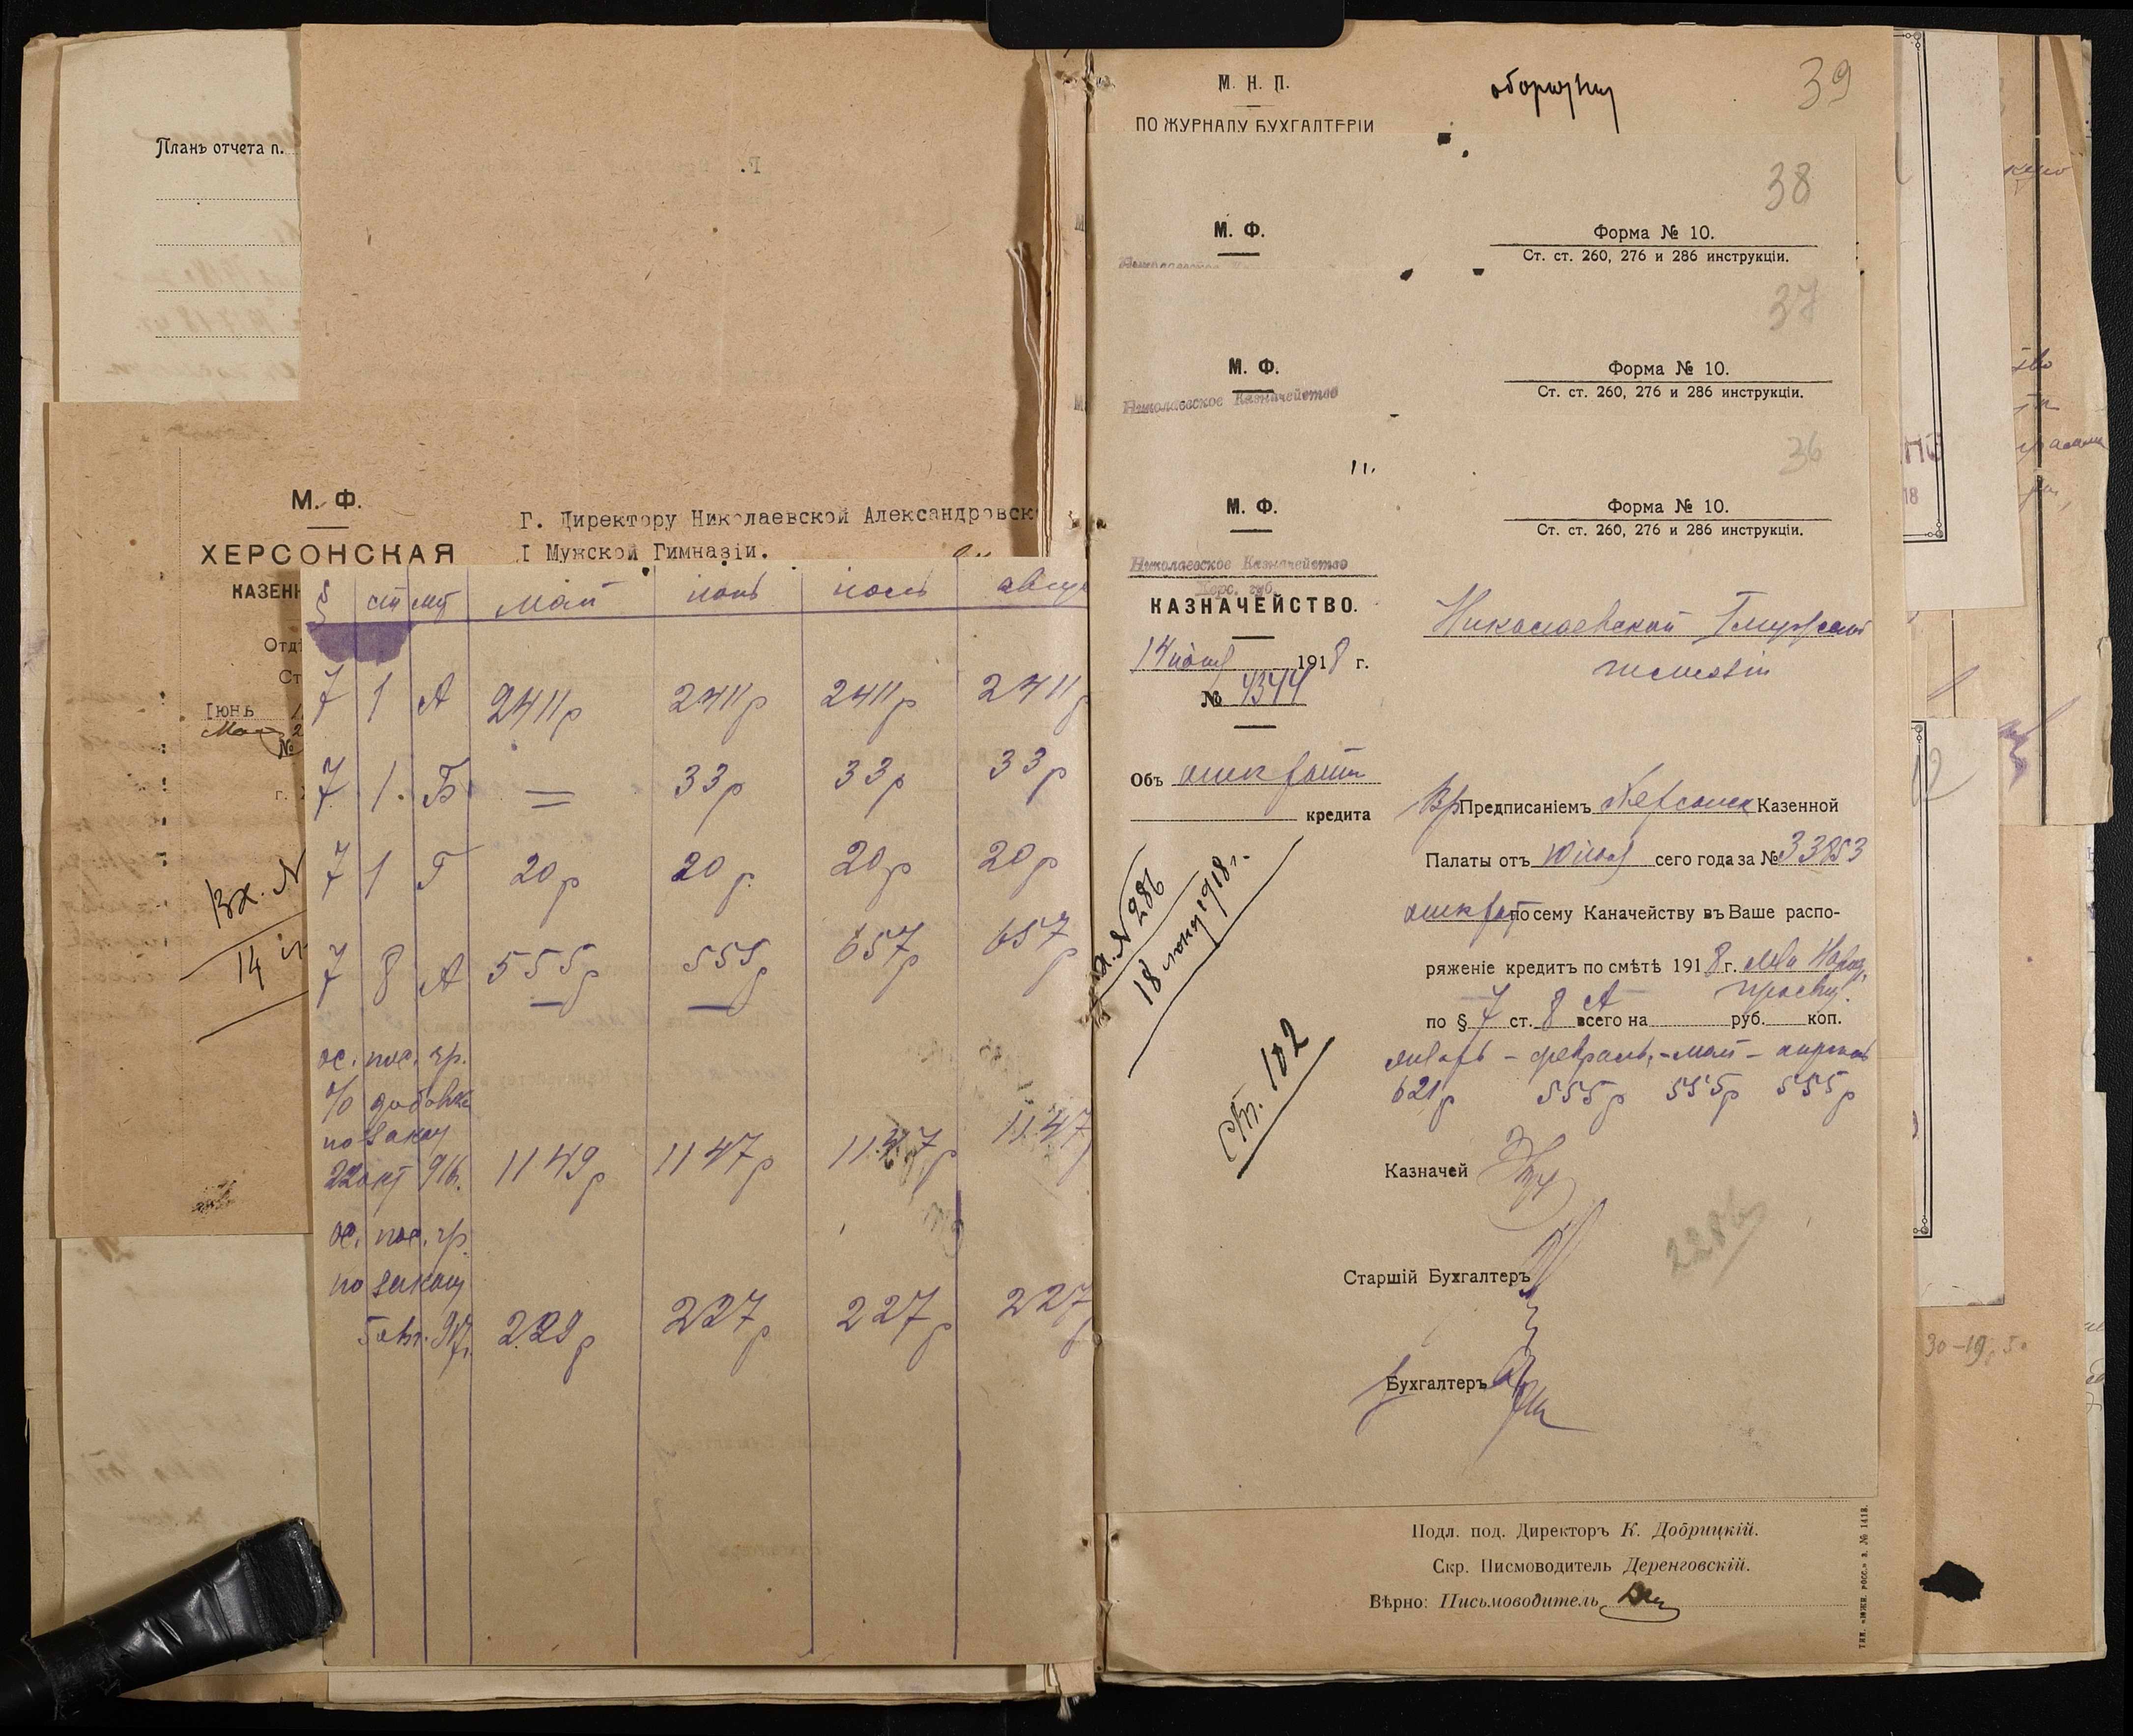 Планъ отчета п.
М. Ф.
ХЕРСОНСКАЯ
КАЗЕНН
Отдѣ
Ст
Іюнь
Май 2
№
Вх. №
14
Г. Директору Николаевской Александровск
I Мужской Гимназіи.
§ ст лит май іюнь іюль авгу
7 1 А 2411р 2411р 2411р 2411р
7 1. Б = 33р 33р 33р
7 1 Г 20р 20р. 20р 20р
7 8 А 555р 555р 657р 657р
ос. нос. гр.
% добавка
по закону
22 окт 916. 1149р 1147р 1147р 1147р
ос. нос. гр.
по закону
5 окт. 917г. 229р 227р 227р 227р
М. Н. П.
ПО ЖУРНАЛУ БУХГАЛТЕРІИ
39
38
М. Ф.
Форма № 10.
Ст. ст. 260, 276 и 286 инструкціи.
Николаевское
37
М. Ф.
Форма № 10.
Ст. ст. 260, 276 и 286 инструкціи.
Николаевское Казначейство
36
М. Ф.
Форма № 10.
Ст. ст. 260, 276 и 286 инструкціи.
Николаевское Казначейство
Херс. губ.
КАЗНАЧЕЙСТВО.
14 іюня 1918 г.
№ 4344
Николаевской I мужской
гимназіи
Объ открытіи
кредита
Предписаніемъ Херсонск Казенной
Палаты отъ 10 іюня сего года за № 33853
открыт по сему Каначейству въ Ваше распо-
ряженіе кредитъ по смѣтѣ 1918 г. М-ва Народ.
Просвѣщ.
по § 7 ст. 8 А всего на руб. коп.
январь - февраль, - май - апрель
621р 555р 555р 555р
Вх. № 286
18 іюня 1918 г.
Ст. 102
Казначей
2286
Старшій Бухгалтеръ
Бухгалтеръ
Подл. под. Директоръ К. Добрицкій.
Скр. Писмоводитель Деренговскій.
Вѣрно: Письмоводитель
ТИП. «ЮЖН. РОСС.» З. № 1418.
30-19